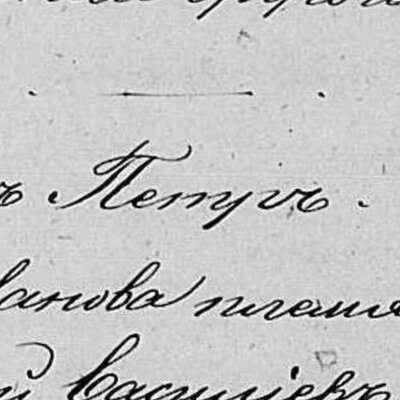 ъ Петръ.
ванова племя
й Василіевъ